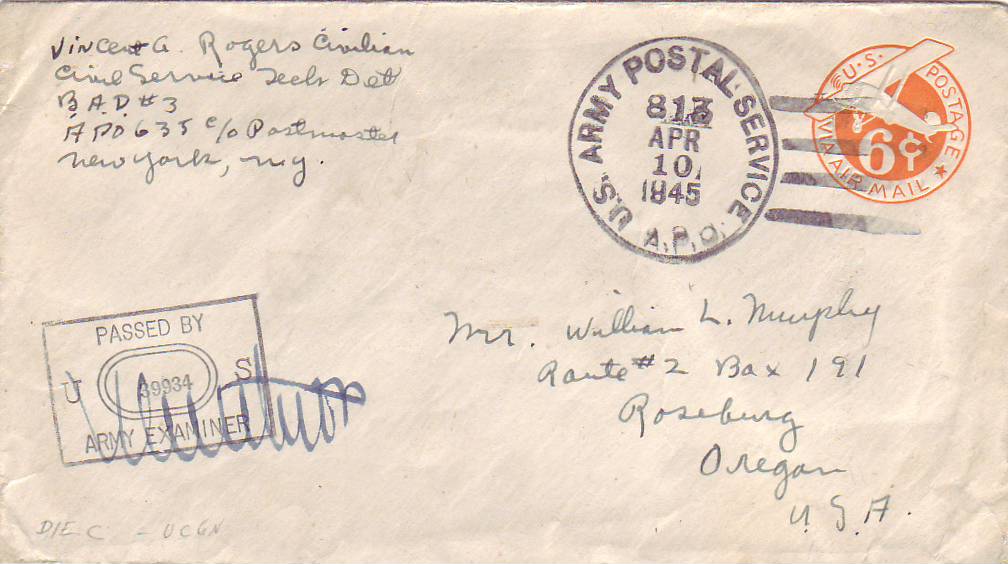 Vincent A. Rogers Civilian
Civil Service Tech Det
B.A.D #3
APO 635 c/o Postmaster
New York, N.Y.
U.S. ARMY POSTAL SERVICE
813
APR
10
1945
A.P.O.
U.S. POSTAGE
6¢
VIA AIR MAIL
PASSED BY
U 39934 S
ARMY EXAMINER
Mr. William L. Murphy
Route #2 Box 191
Roseburg
Oregon
U.S.A.